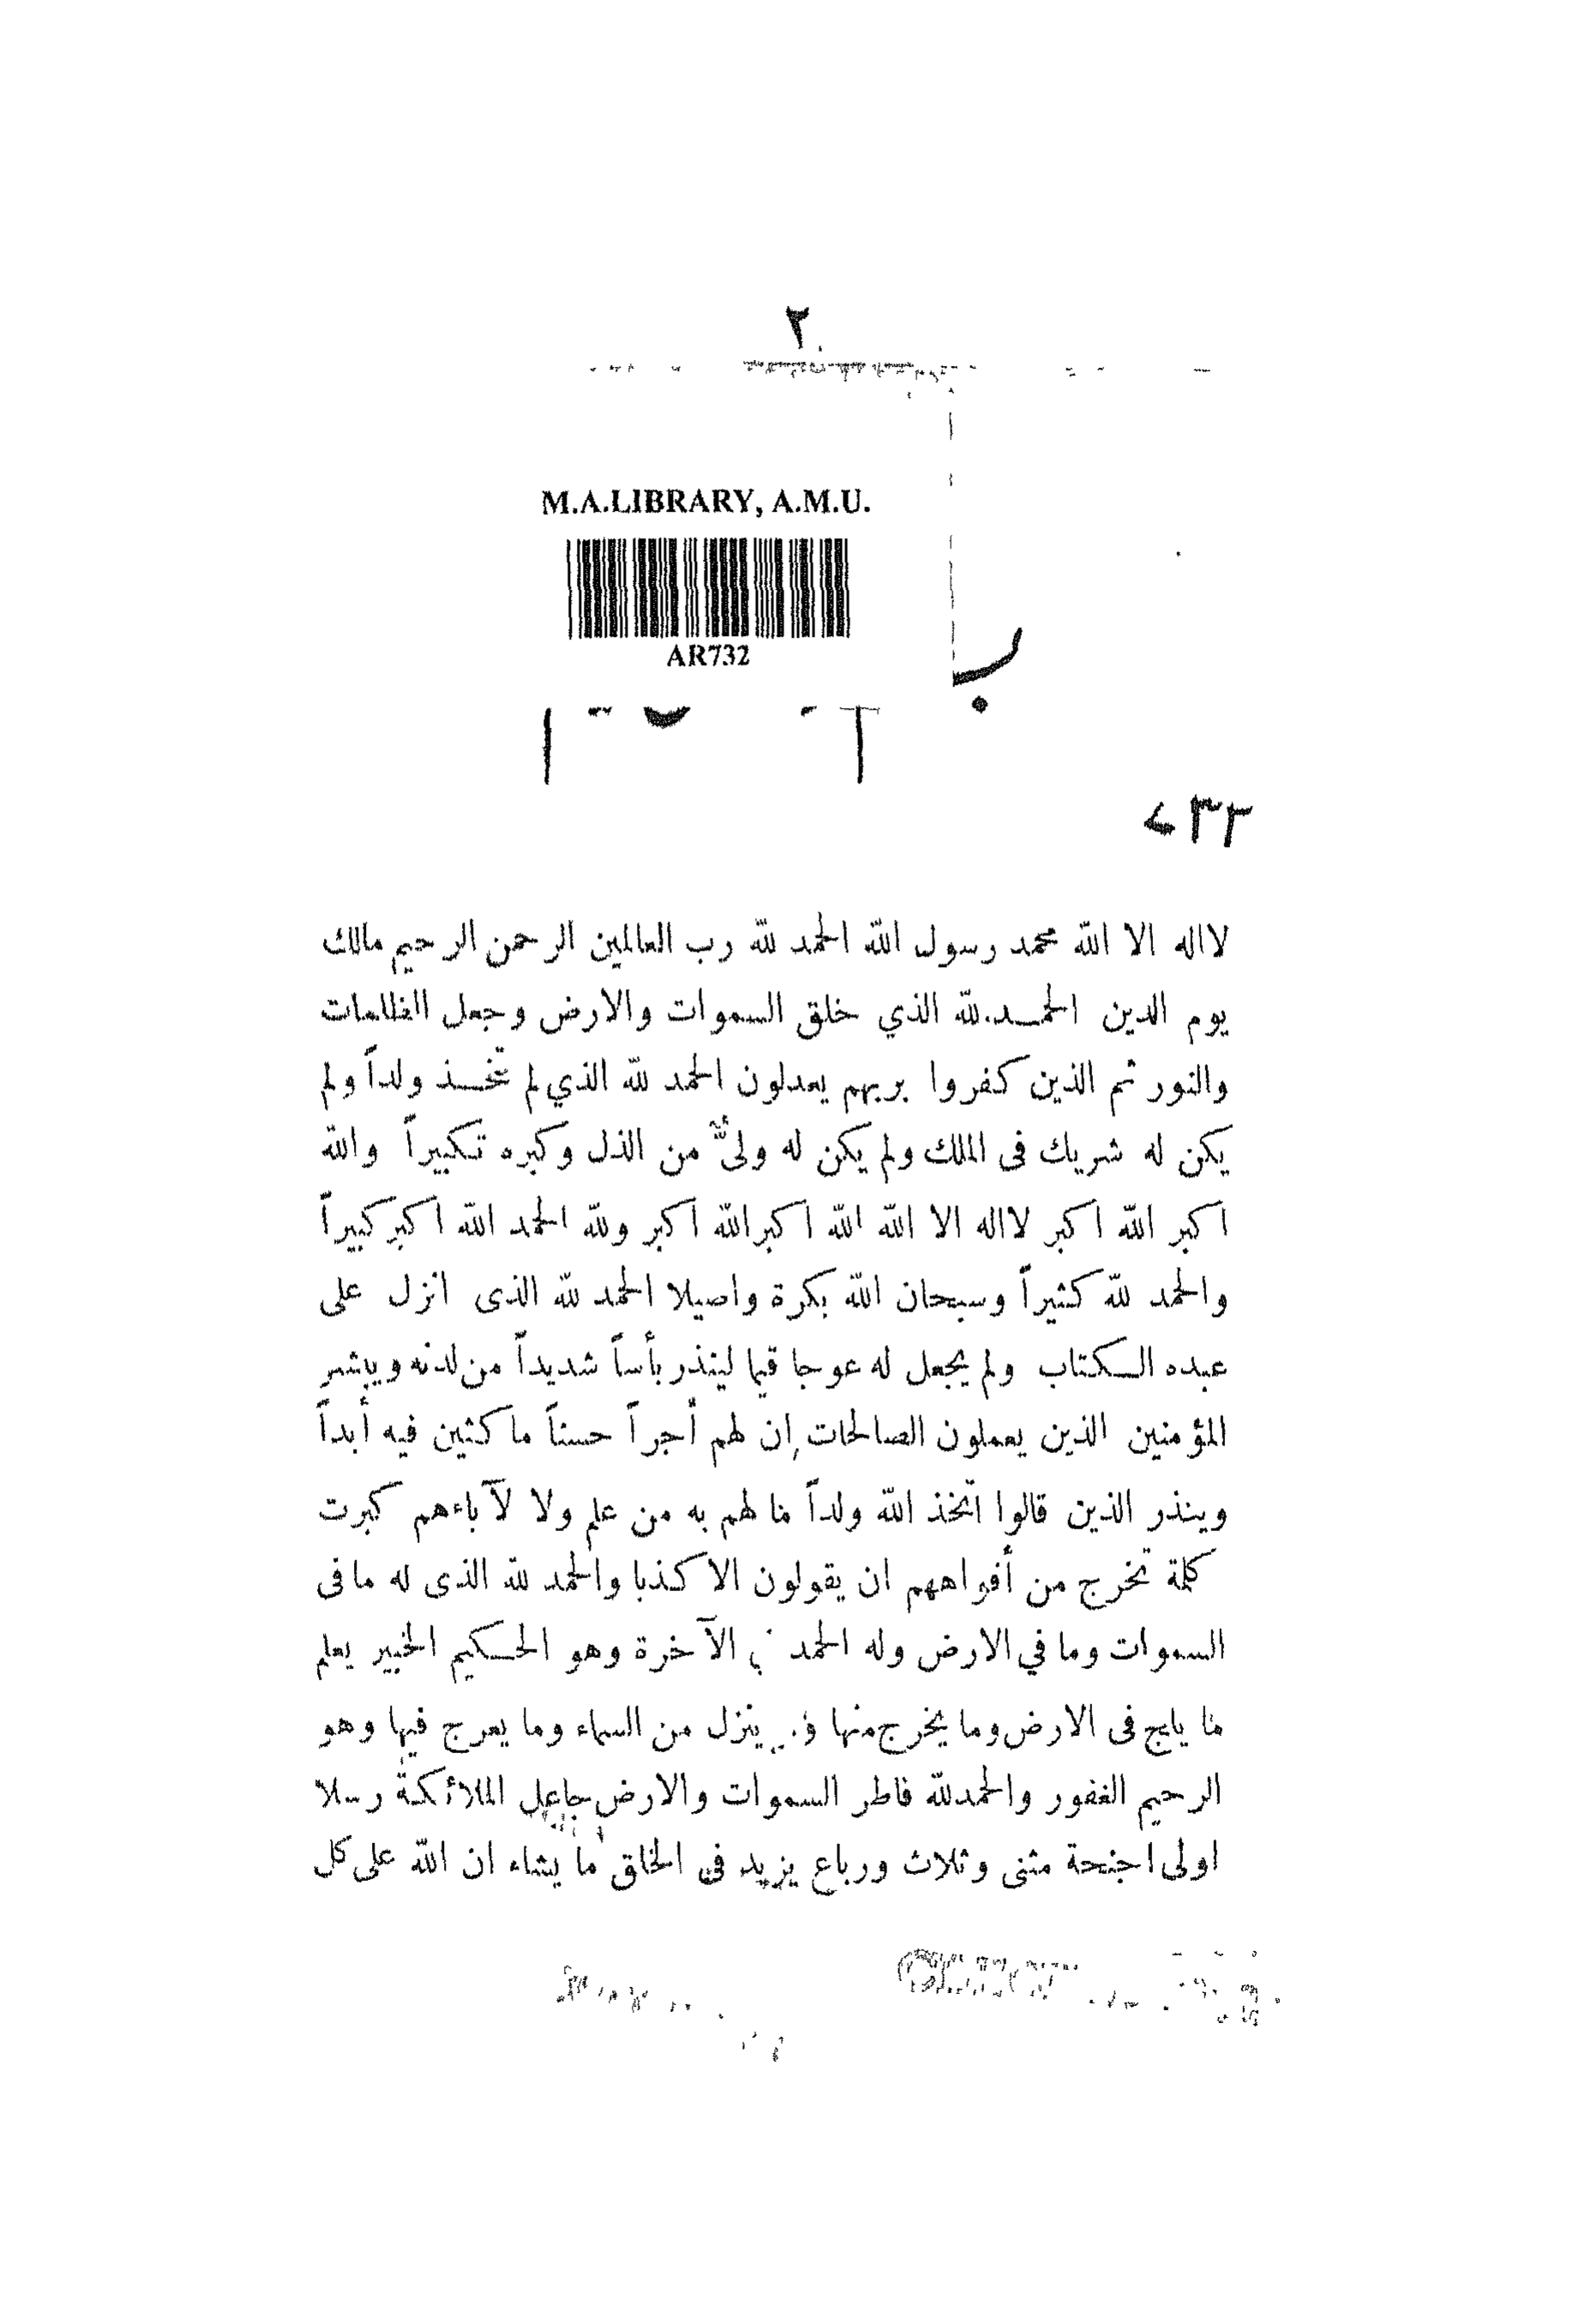 ٢
M.A.LIBRARY, A.M.U.
AR732
٧٣٢
لااله الا الله محمد رسول الله الحمد لله رب العالمين الرحمن الرحيم مالك
يوم الدين الحمـد لله الذي خلق السموات والارض وجعل الظلمات
والنور ثم الذين كفروا بربهم يعدلون الحمد لله الذي لم يتخـذ ولداً ولم
يكن له شريك فى الملك ولم يكن له ولىٌّ من الذل وكبره تكبيراً والله
اكبر الله اكبر لااله الا الله الله اكبرالله اكبر ولله الحمد الله اكبر كبيراً
والحمد لله كثيراً وسبحان الله بكرة واصيلا الحمد لله الذى انزل على
عبده الـكتاب ولم يجعل له عوجا قيما لينذر بأساً شديداً من لدنه ويبشر
المؤمنين الذين يعملون الصالحات إن لهم أجراً حسناً ماكثين فيه أبداً
وينذر الذين قالوا اتخذ الله ولداً ما لهم به من علم ولا لآباءهم كبرت
كلمة تخرج من أفواههم ان يقولون الا كذبا والحمد لله الذى له مافى
السموات وما في الارض وله الحمد الآخرة وهو الحـكيم الخبير يعلم
ما يلج فى الارض وما يخرج منها ينزل من السماء وما يعرج فيها وهو
الرحيم الغفور والحمدلله فاطر السموات والارض جاعل الملائكة رسلا
اولى اجنحة مثنى وثلاث ورباع يزيد فى الخلق ما يشاء ان الله على كل